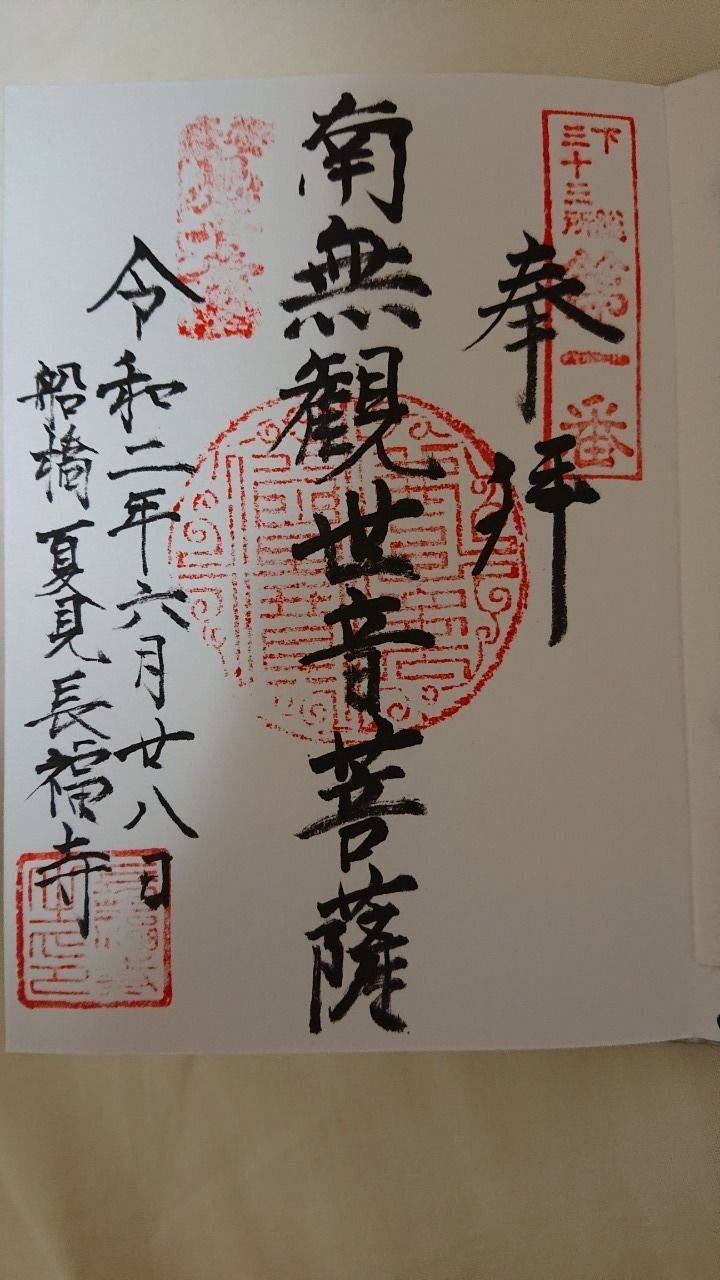 下総
三十三所
第一番
奉拝
南無観世音菩薩
令和二年六月廿八日
船橋夏見長福寺